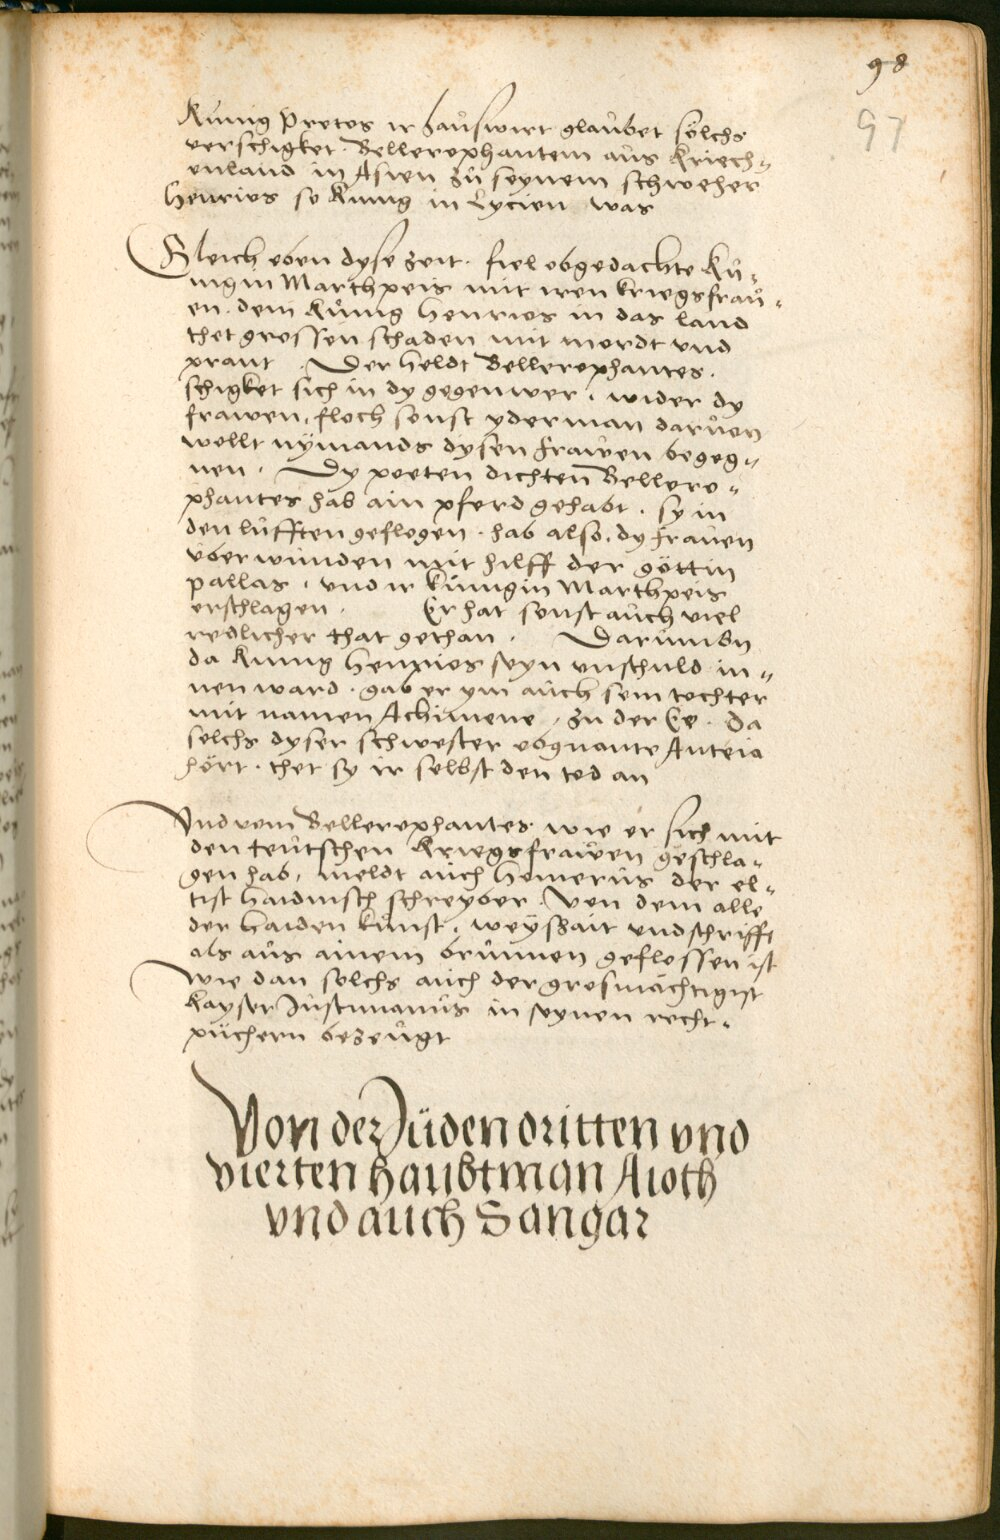 98
97
Künig Pretos ir haůswirt glaůbet sölchs
verschigket. Bellerophantem aůs Kriech=
enland in Asien zů seynem schweher
Henrios so Künig in Lycien was
Gleich eben dyse zeit. fiel obgedachte Ků=
nigin Marthpeis mit iren kriegsfraů=
en. dem Kůnig Henrios in das land
thet grossen schaden mit mordt vnd
prant. Der heldt Bellerophantes.
schigket sich in dy gegenwer. wider dy
frawen. floch sonst yderman darůon
wollt nymands dysen fraůen begeg=
nen. Dy poeten dichten Bellero=
phantes hab ain pferd gehabt. sy in
den lüfften geflogen. hab also. dy fraůen
vberwunden mit hilff der göttin
pallas. vnd ir künigin Marthpeis
erschlagen. Er hat sonst aůch viel
redlicher that gethan. Darumbn
da Kunig Henrios seyn vnschuld in=
nen ward. gab er ym aůch sein tochter
mit namen Achimene. zu der Ee. Da
solchs dyser schwester obgnante Anteia
hört. thet sy ir selbst den tod an
Vnd vom Bellerophantes wie er sich mit
den teůtschen Kriegsfraůen geschla=
gen hab, meldt aůch Homerůs der el=
tist haidnisch schreyber. Von dem alle
der haiden kůnst. weyßhait vnd schrifft
als aůs ainem brůnnen geflossen ist
wie dan solchs aůch der grosmächtigist
Kayser Jůstinianůs in seynen recht=
püchern bezeůgt
Von der Jüden dritten vnd
vierten haubtman Aioth
vnd auch Sangar